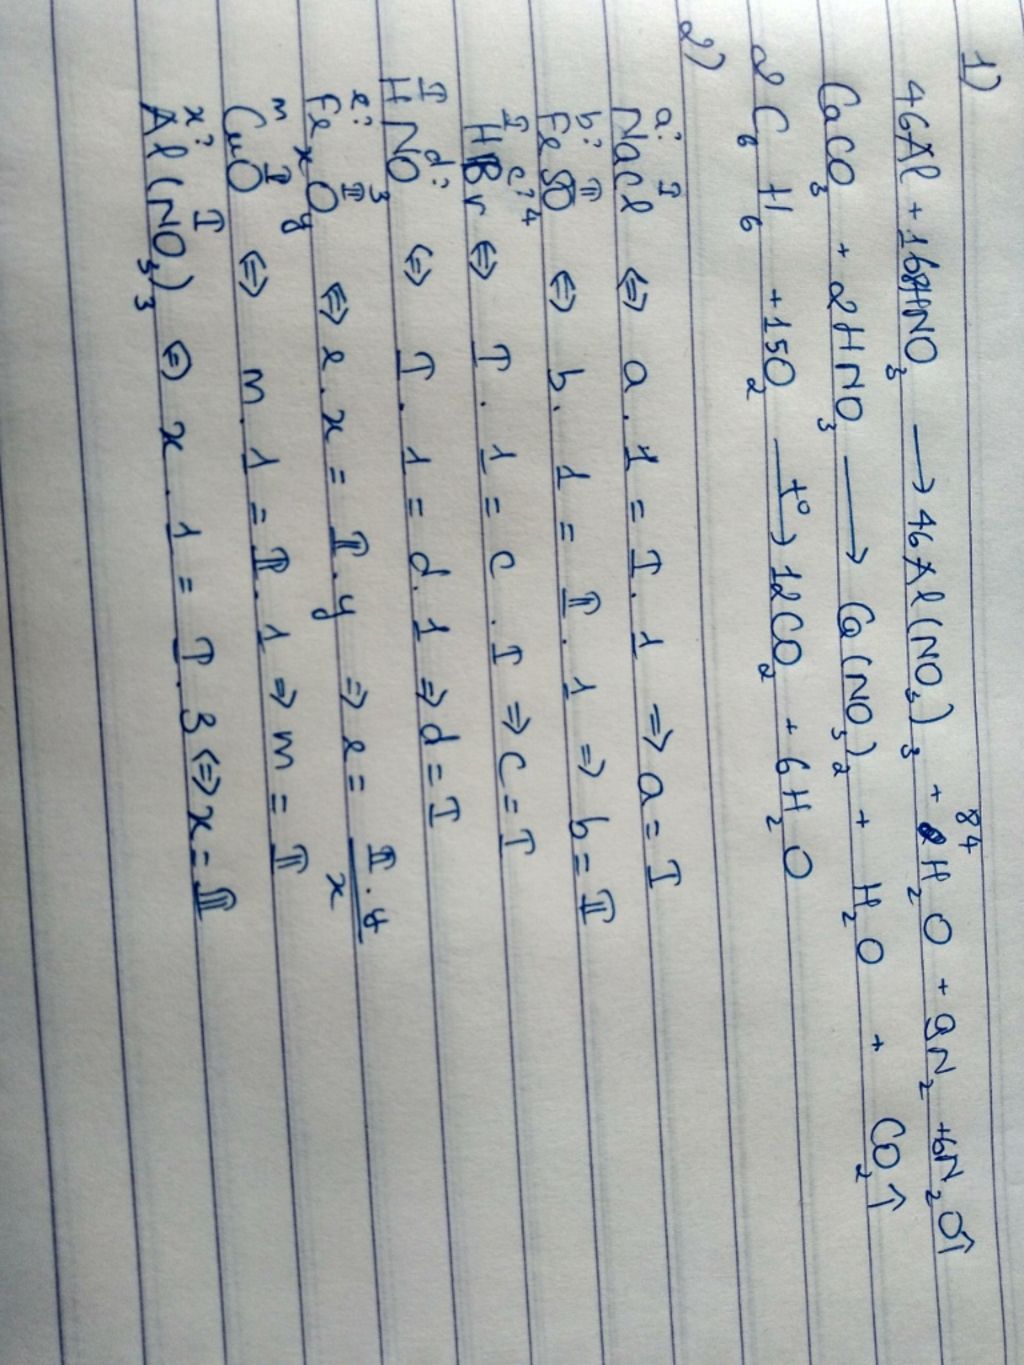 1)
46Al + 168HNO₃ → 46Al(NO₃)₃ + 84H₂O + 9N₂ + 6N₂O↑
CaCO₃ + 2HNO₃ → Ca(NO₃)₂ + H₂O + CO₂↑
2C₆H₆ + 15O₂ —t°→ 12CO₂ + 6H₂O
2)
a? I
NaCl ⇔ a.1 = I.1 ⇒ a = I
b? II
FeSO₄ ⇔ b.1 = II.1 ⇒ b = II
I c?
HBr ⇔ I.1 = c.I ⇒ c = I
I d?
HNO₃ ⇔ I.1 = d.1 ⇒ d = I
e? II
FeₓOy ⇔ e.x = II.y ⇒ e = II.y/x
m II
CuO ⇔ m.1 = II.1 ⇒ m = II
x? I
Al(NO₃)₃ ⇔ x.1 = I.3 ⇔ x = III